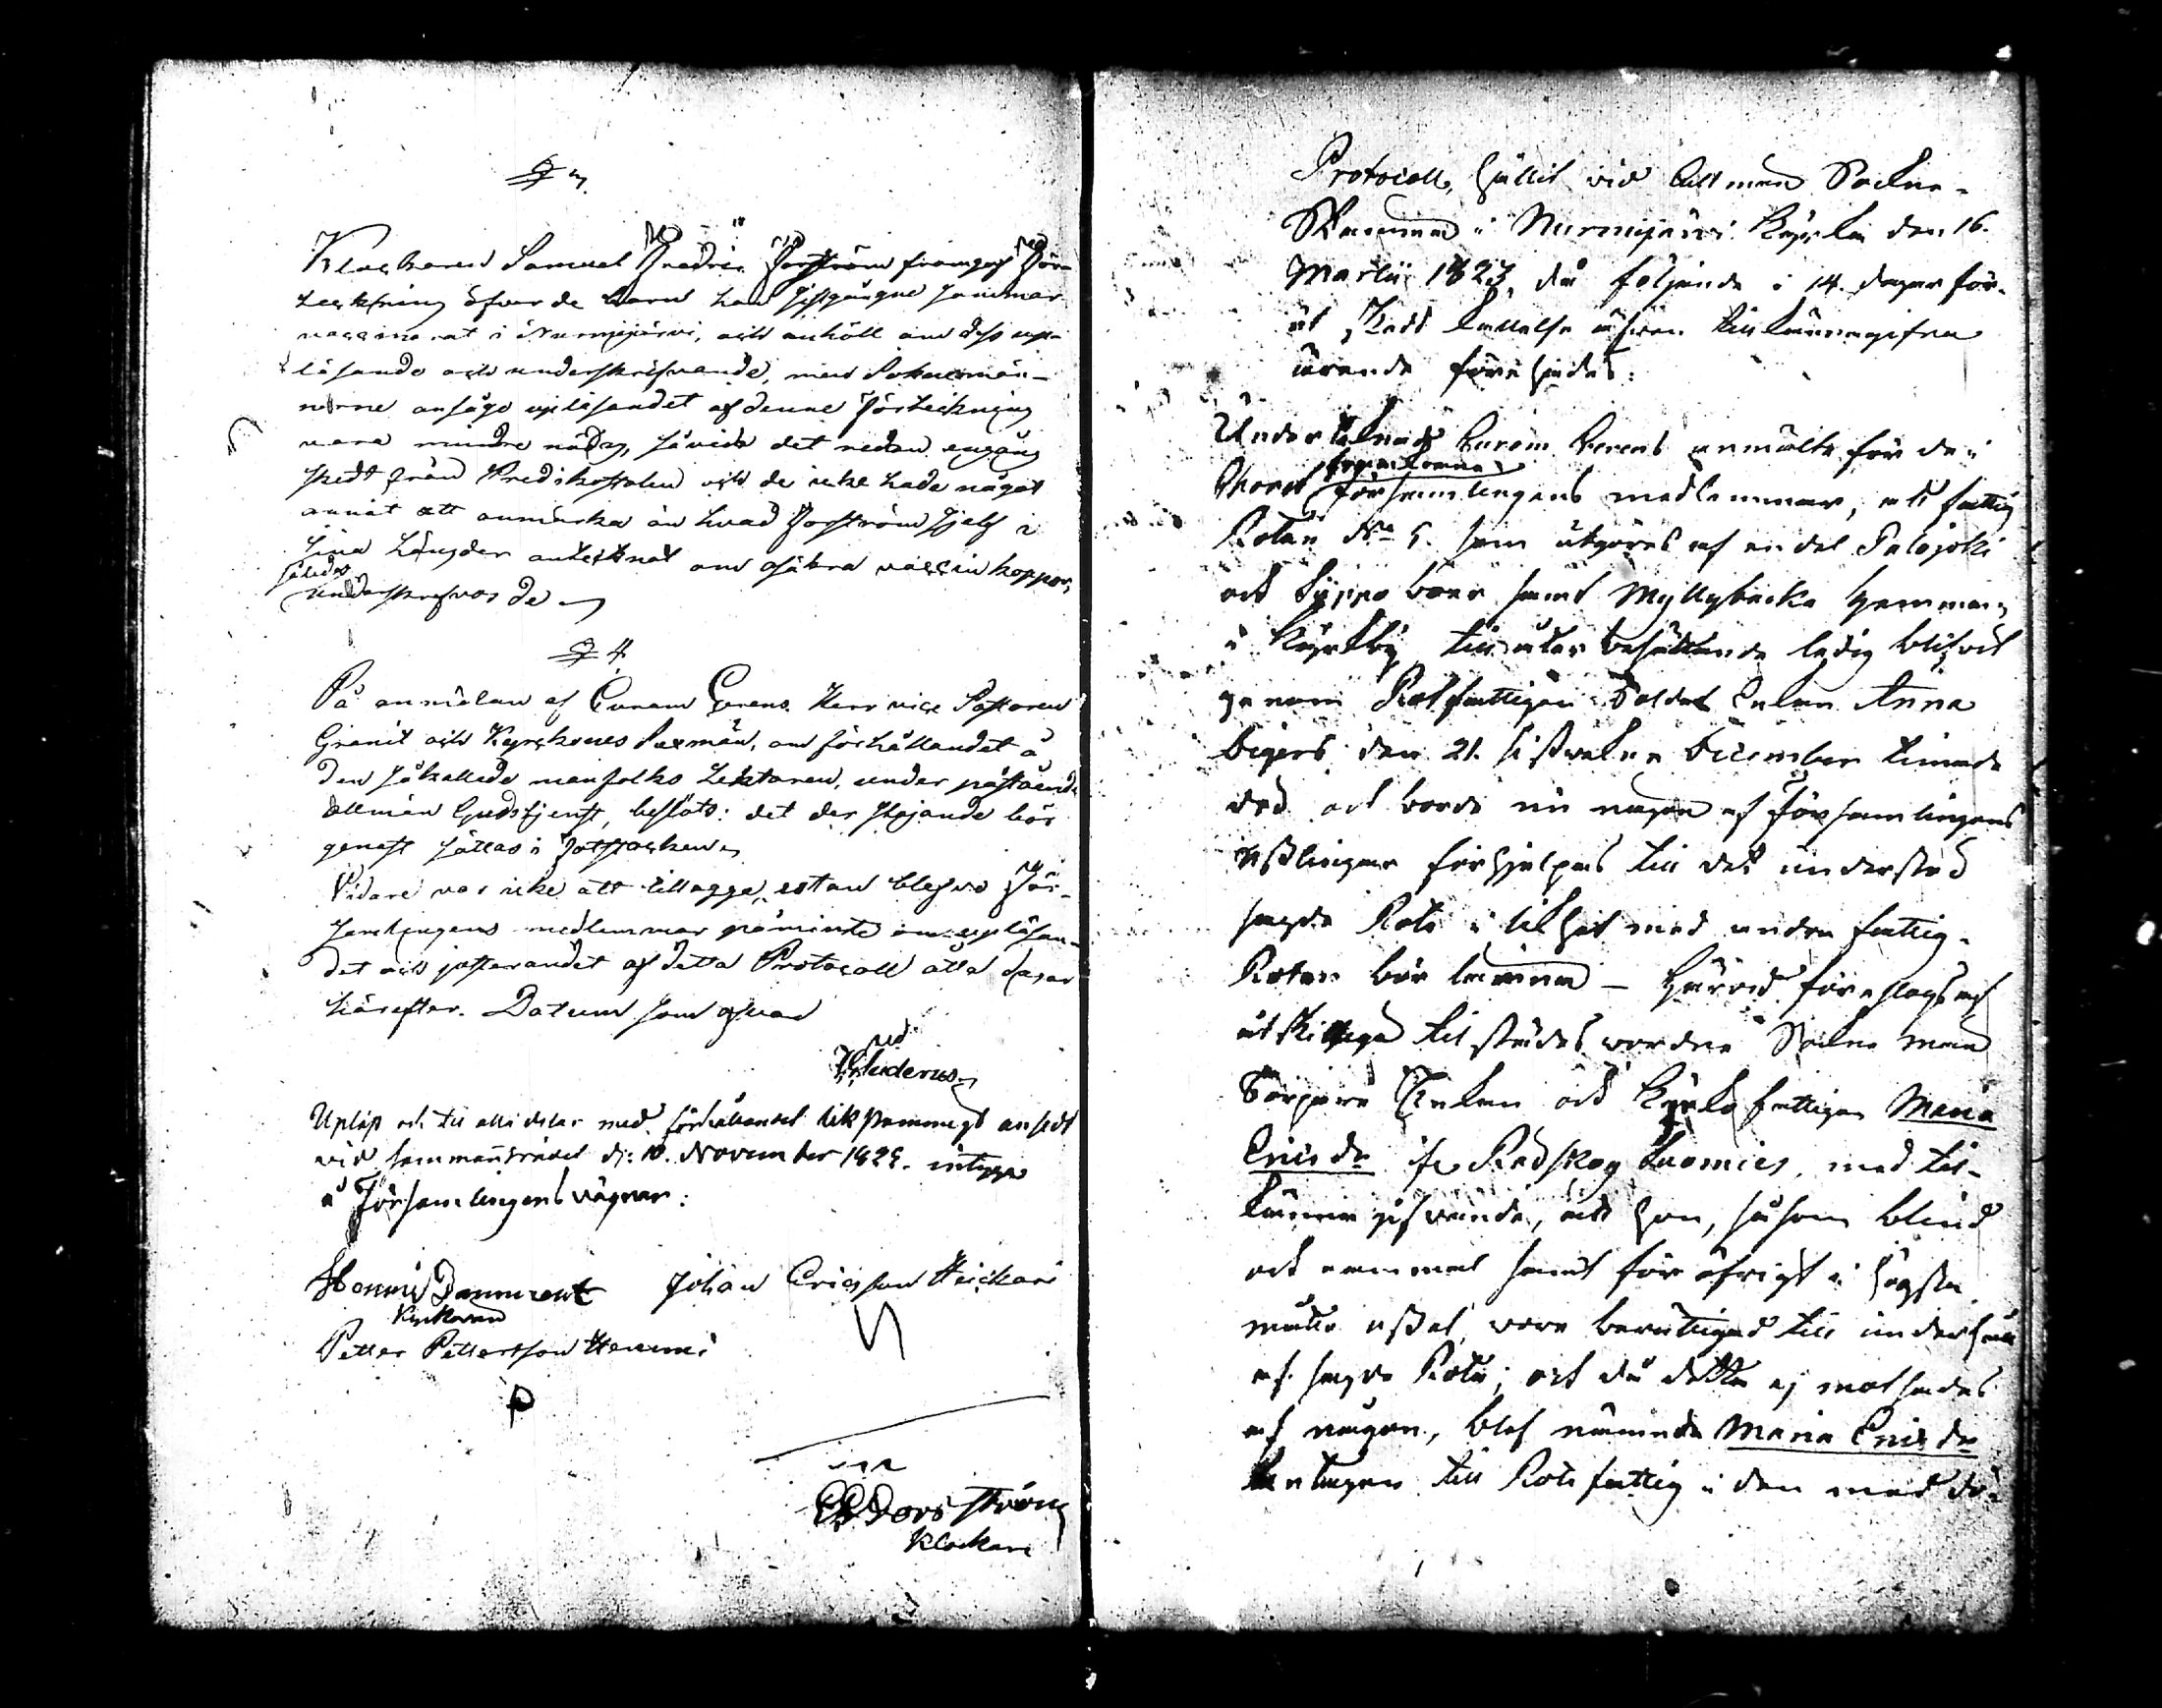 § 3.
Klockaren Samuel Fredric Forsström framgaf För-
teckning öfver de barn han sistgångne sommar
vaccinerat i Nurmijärvi, och anhöll om dess up-
läsande och underskrifvande, men Soknemän-
nerne ansågo upläsandet af denne förteckning
vara mindre nödig, såvida det redan engång
skedt från Predikstolen och de icke hade något
annat att anmärka än hvad Forsström sjelf i
sina Längder antecknat om osäkra vaccin koppor,
således
underskrefvos de
§ 4.
På anmälan af Curam Gerens Herr vice Pastoren
Granit och Kyrckones Sexmän, om förhållandet å
den så kallade manfolks Lecktaren, under påstående
allmän Gudstjenst, beslöts: det der stojande bör
genast sättas i fotstocken
Vidare var icke att tillägga, utan blefvo För-
samlingens medlemmar påminte om upläsan-
det och justerandet af detta Protocoll åtta dagar
härefter. Datum som ofvan
Upläst och til alla delar med förhållandet lik stämmigt ansedt
vid sammanträdet d: 10. November 1822. intyga
å Församlingens vägnar:
Henric Johan Ericsson Heickari
Kyrkovärd
Petter Pettersson Hemmi
P
SF Forsström
Klockare
Protocoll, hållit vid allmän Sockne-
Stämma i Nurmijärvi Kyrka den 16.
Martii 1823, då följande i 14. dagar för-
ut, skedd kallelse äfven tillkännagifne
ärende förehades:
Undertecknad Curam Gerens anmälte för de i
Choret församlingens medlemmar, att fattig
Rotan No 5. som utgöres af en del Palojoki
och Syppo boer samt Myllybacka hemman
i Kyrkby till åter besättande ledig blifvit
genom Rotfattigan Soldat Enkan Anna
Bigers den 21. sistvekne December timade
död och borde nu någon af församlingens
uslingar förhjelpas till det understöd
sagde Rote i likhet med andra fattig-
Rotar bör lemna — Härvid föreslogs af
åtskillige tilstädes vordne Sockne män
Torpare Enkan och Kyrko fattigan Maria
Ericsdr ifr. Rödskog Luomies, med till-
känna gifvande, att hon, såsom blind
och gammal samt för öfrigt i högsta
måtto usel, vore berättigad till underhåll
af sagde Rote; och då detta ej motsades
af någon, blef nämnde Maria Ericsdr
antagen till Rotefattig i den med dö-